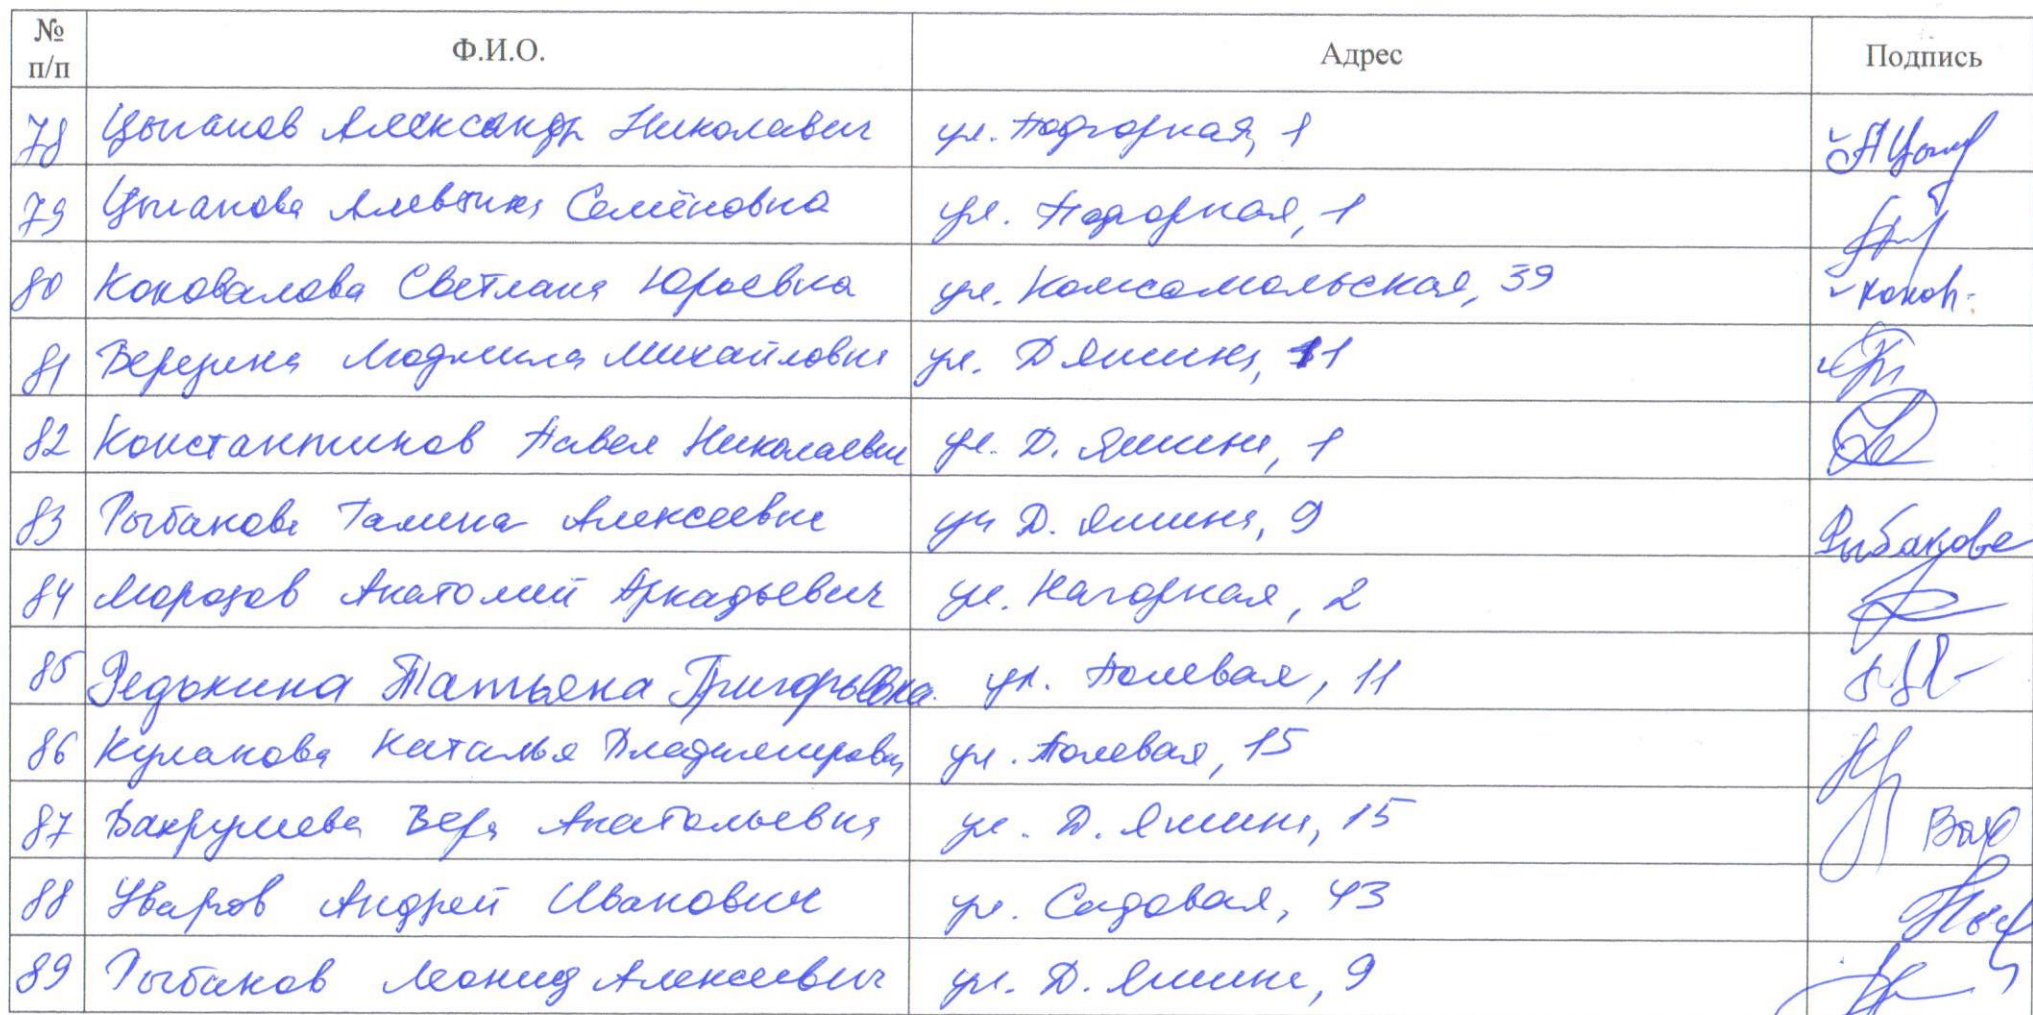 № п/п Ф.И.О. Адрес Подпись
78 Цыганов Александр Николаевич ул. Подгорная, 1
79 Цыганова Алевтина Семёновна ул. Подгорная, 1
80 Коновалова Светлана Юрьевна ул. Комсомольская, 39 Конов.
81 Березина Людмила Михайловна ул. Д Яшина, 11
82 Константинов Павел Николаевич ул. Д. Яшина, 1
83 Рыбакова Галина Алексеевна ул Д. Яшина, 9 Рыбакова
84 Морозов Анатолий Аркадьевич ул. Нагорная, 2
85 Редькина Татьяна Григорьевна ул. Полевая, 11
86 Кулакова Наталья Владимировна ул. Полевая, 15
87 Вахрушева Вера Анатольевна ул. Д. Яшина, 15 Вах
88 Уваров Андрей Иванович ул. Садовая, 43
89 Рыбаков Леонид Алексеевич ул. Д. Яшина, 9